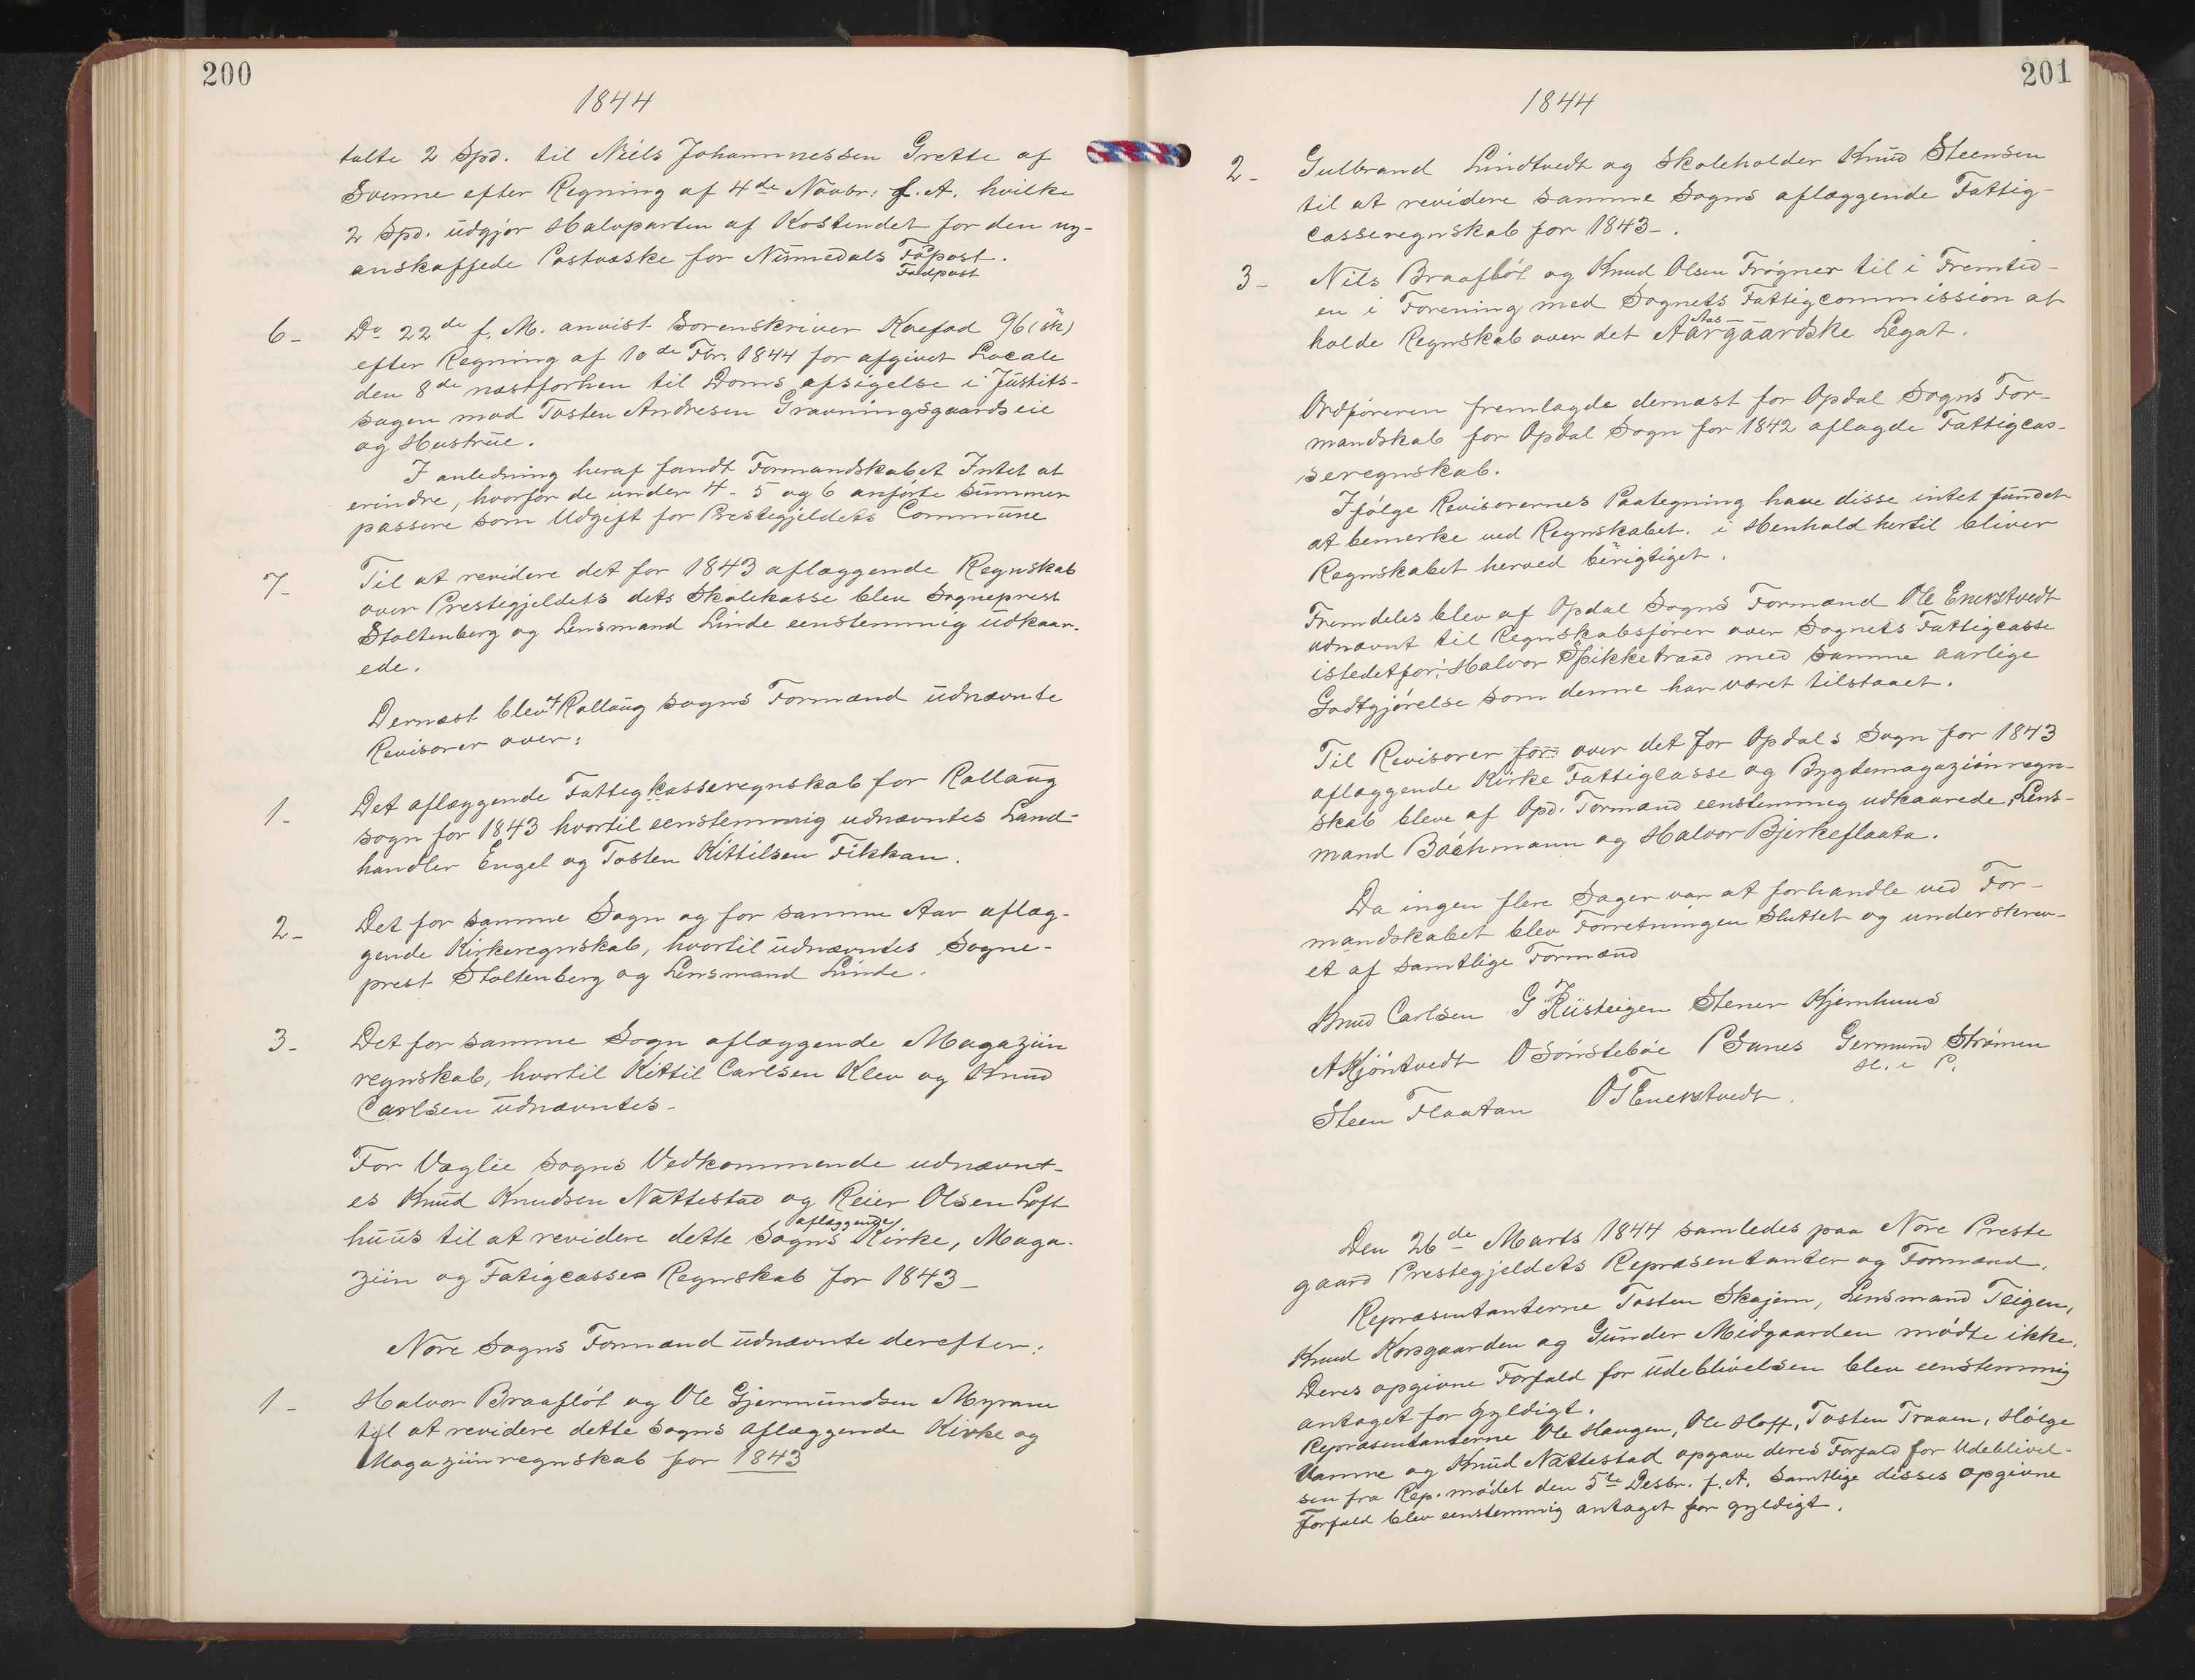 200
1844
talte 2 Spd. til Niels Johannessen Grette af
Svenne efter Regning af 4de Novbr: f. A. hvilke
2 Spd. udgjør Halvparten af Kostendet for den ny-
anskaffede Postvæske for Numedals Fapost.
Fodpost
6- Do 22de f. M. anvist Sorenskriver Koefod 96 (sk)
efter Regning af 10de Fbr. 1844 for afgivet Locale
den 8de næstforhen til Doms afsigelse i Justits-
sagen mod Tosten Andresen Gravningsgaardseie
og Hustrue.
I anledning heraf fandt Formandskabet Intet at
erindre, hvorfor de under 4- 5 og 6 anførte Summer
passere som Udgift for Prestegjeldets Commune
7- Til at revidere det for 1843 aflæggende Regnskab
over Prestegjeldets dets Skolekasse blev Sogneprest
Stoltenberg og Lensmand Linde eenstemmig udkaar-
ede.
Dernæst blev af Rollaug sogns Formænd udnævnte
Revisorer over:
1- Det aflæggende Fattigkasseregnskab for Rollaug
sogn for 1843 hvortil eenstemmig udnævntes Land-
handler Engel og Tosten Kittilsen Fikkan.
2- Det for samme Sogn og for samme Aar aflæg-
gende Kirkeregnskab, hvortil udnævntes Sogne-
prest Stoltenberg og Lensmand Linde.
3- Det for samme Sogn aflæggende Magaziin
regnskab, hvortil Kittil Carlsen Klev og Knud
Carlsen udnævntes-
For Væglie Sogns Vedkommende udnævnt-
es Knud Knudsen Nattestad og Reier Olsen Loft
aflæggende
huus til at revidere dette Sogns Kirke, Maga-
ziin og Fatigcasses Regnskab for 1843-
Nore Sogns Formænd udnævnte derefter:
1- Halvor Braafløt og Ole Gjermundsen Myrann
til at revidere dette sogns aflæggende Kirke og
Magaziinregnskab for 1843
201
1844
2- Gulbrand Lindtvedt og Skoleholder Knud Steensen
til at revidere samme Sogns aflæggende Fattig-
casseregnskab for 1843-.
3- Nils Braafløt og Knud Olsen Frøgner til i Fremtid-
en i Forening med Sognets Fattigcommission at
Aas-
holde Regnskab over det Aargaardske Legat.
Ordføreren fremlagde dernæst for Opdal Sogns For-
mandskab for Opdal Sogn for 1842 aflagde Fattigcas-
seregnskab.
Ifølge Revisorernes Paategning have disse intet fundet
at bemerke ved Regnskabet. i Henhold hertil bliver
Regnskabet herved berigtiget.
Fremdeles blev af Opdal Sogns Formænd Ole Enerstvedt
udnævnt til Regnskabsfører over Sognets Fattigcasse
istedetfor Halvor Spikketraad med samme aarlige
Godtgjørelse som denne har været tilstaaet.
Til Revisorer for over det for Opdals Sogn for 1843
aflæggende Kirke Fattigcasse og Bygdemagaziinregn-
skab bleve af Opd. Formænd eenstemmig udkaarede, Lens-
mand Bachmann og Halvor Bjerkeflaata.
Da ingen flere Sager var at forhandle ved For-
mandskabet blev Forretningen Sluttet og underskrev-
et af samtlige Formænd
Knud Carlsen G Rusteigen Stener Kjemhuus
A Kjøntvedt O Sønstebøe P Sanes Germund Strømen
H. i P.
Steen Flaatan OT Enerstvedt.
Den 26de Marts 1844 samledes paa Nore Preste
gaard Prestegjeldets Repræsentanter og Formænd.
Repræsentanterne Tosten Skajem, Lensmand Teigen,
Knud Korsgaarden og Gunder Midgaarden mødte ikke.
Deres opgivne Forfald for Udeblivelsen blev eenstemmig
antaget for gyldigt.
Repræsentanterne Ole Haugen, Ole Hoff, Tosten Traaen, Helge
Vamre og Knud Nattestad opgave deres Forfald for Udeblivel-
sen fra Rep. mødet den 5te Desbr. f. A. Samtlige disses opgivne
Forfald blev eenstemmig antaget for gyldigt.